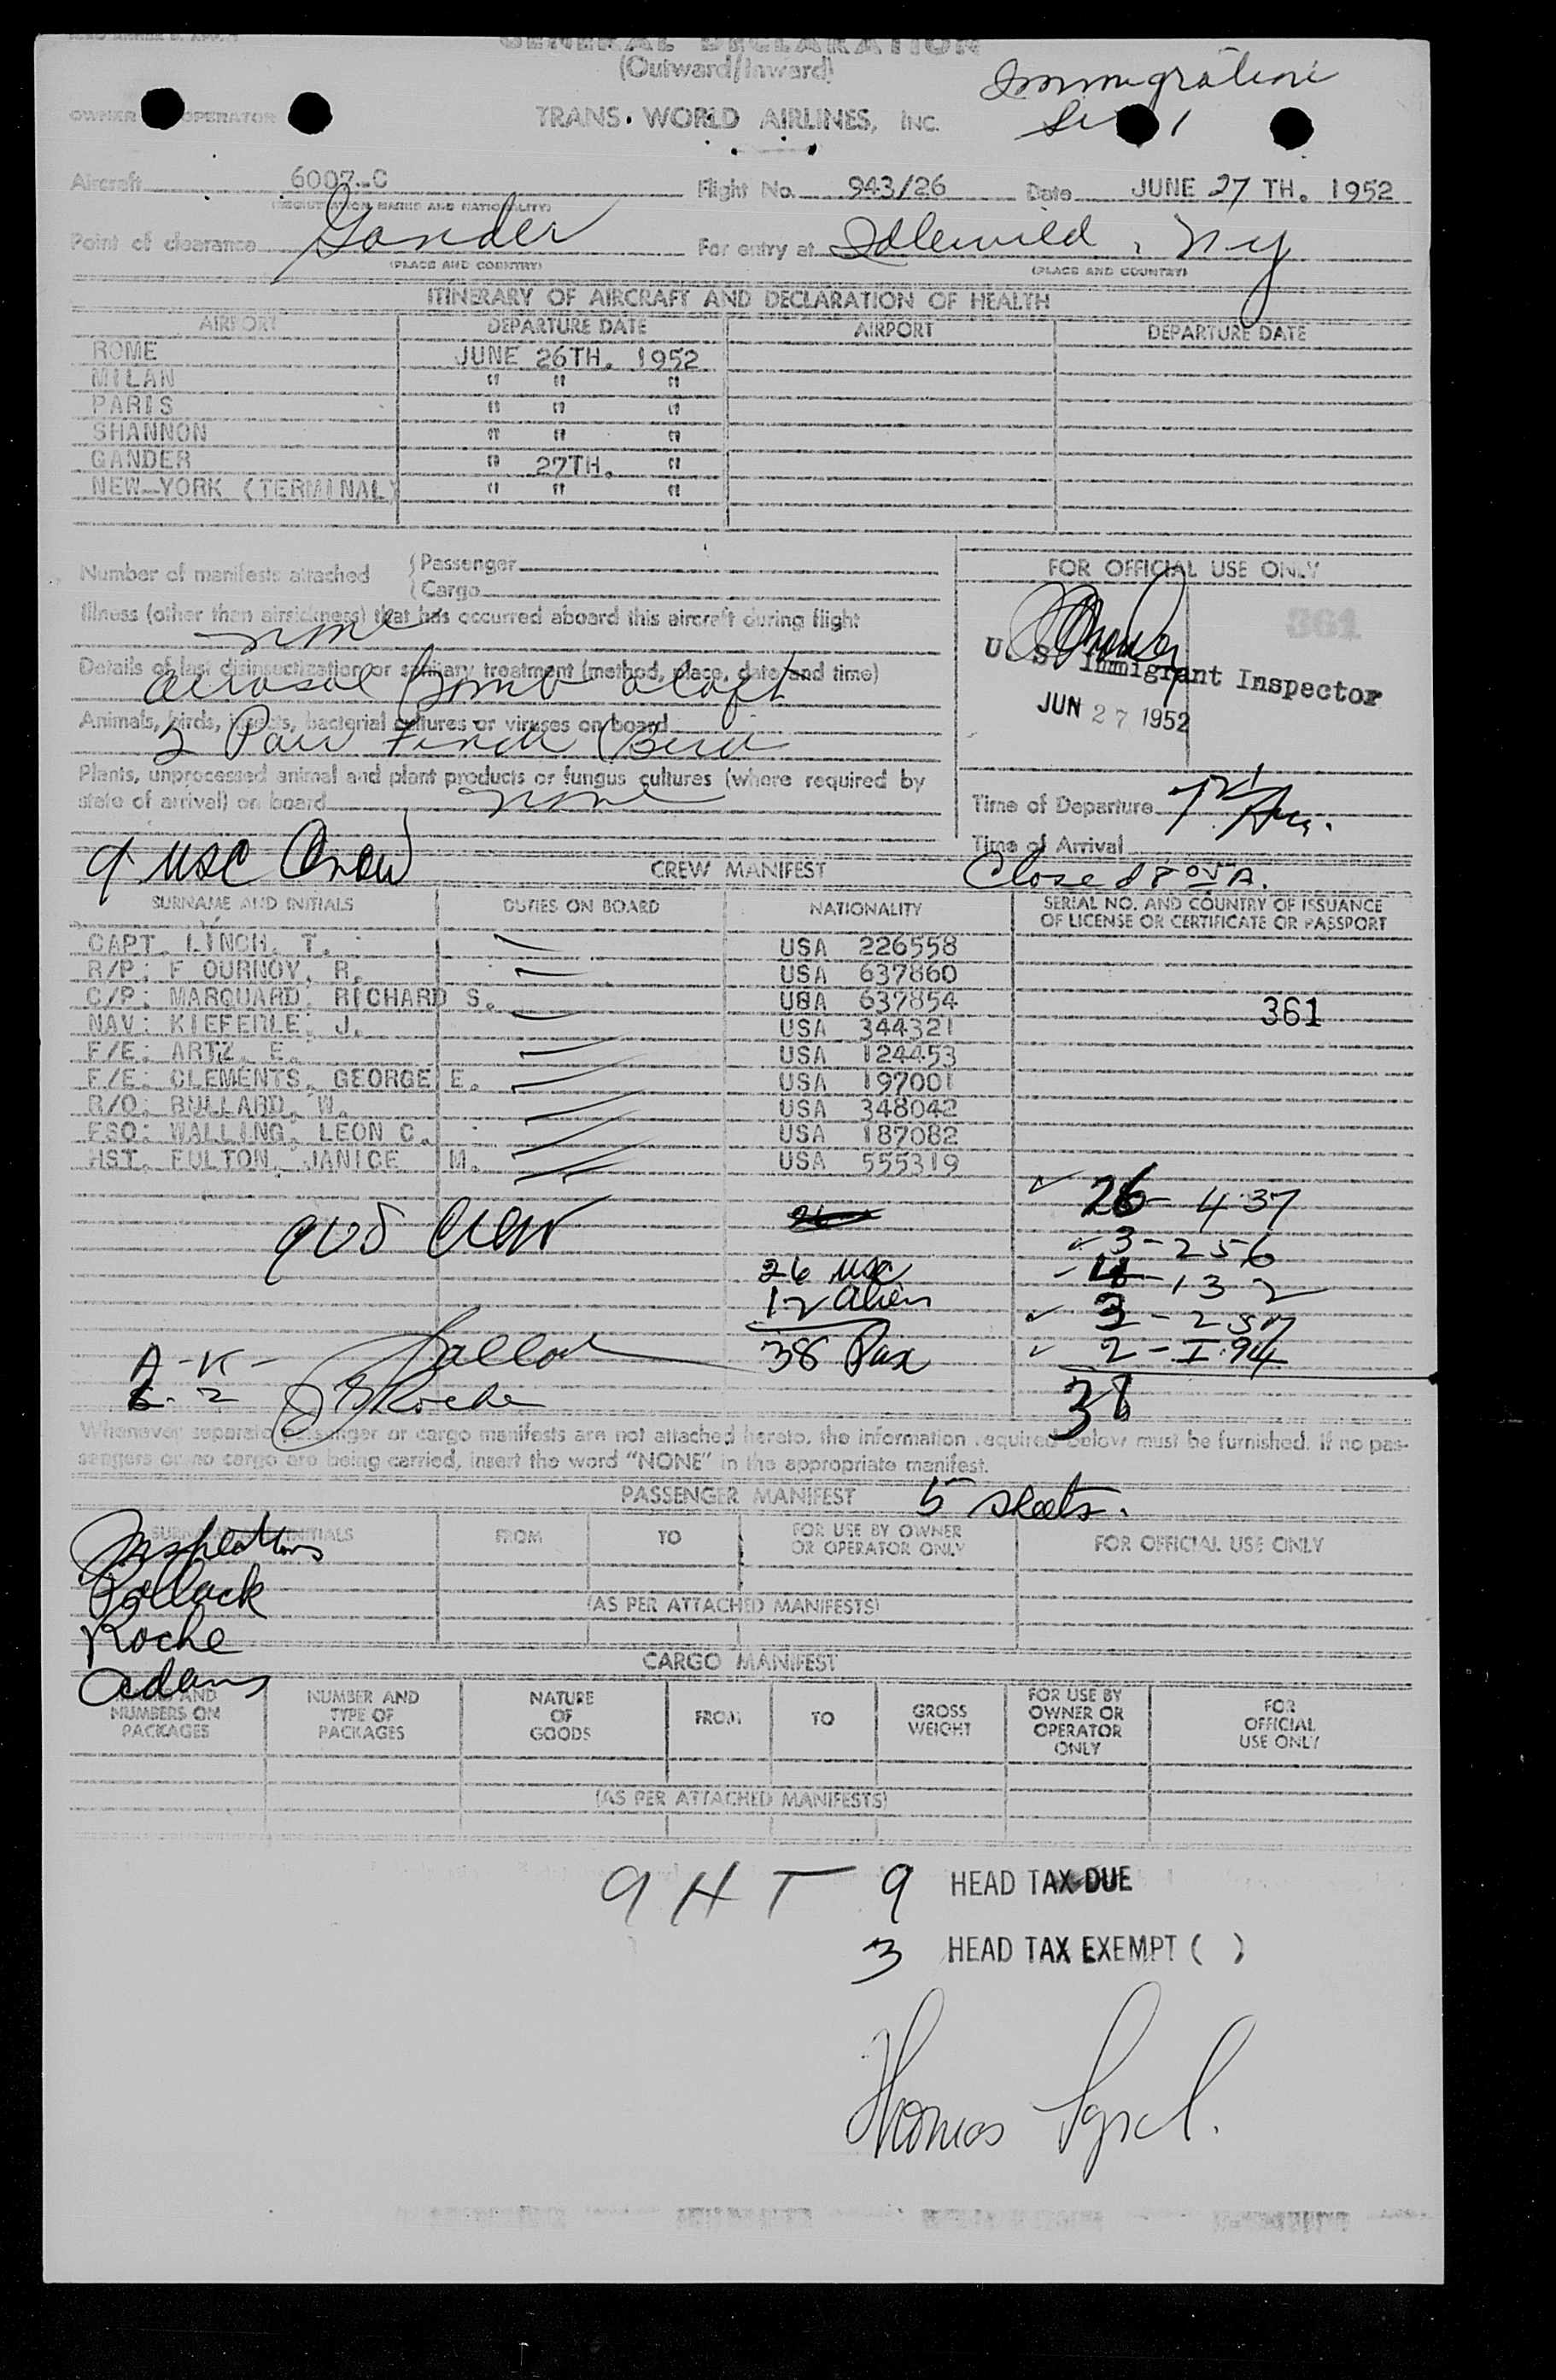 GENERAL DECLARATION
(Outward/Inward)
Immigration
OWNER OPERATOR
TRANS WORLD AIRLINES, INC.
Aircraft 6007-C Flight No. 943/26 Date JUNE 27 TH. 1952
(REGISTRATION MARKS AND NATIONALITY)
Point of clearance Gander For entry at Idlewild, NY
(PLACE AND COUNTRY) (PLACE AND COUNTRY)
ITINERARY OF AIRCRAFT AND DECLARATION OF HEALTH
AIRPORT DEPARTURE DATE AIRPORT DEPARTURE DATE
ROME JUNE 26TH. 1952
MILAN " " "
PARIS " " "
SHANNON " " "
GANDER " 27TH. "
NEW-YORK (TERMINAL) " " "
Number of manifests attached (Passenger
(Cargo
FOR OFFICIAL USE ONLY
361
Illness (other than airsickness) that has occurred aboard this aircraft during flight
none
U. S. Immigrant Inspector
JUN 27 1952
Details of last disinsectization or sanitary treatment (method, place, date and time)
aerosol bomb aloft
Animals, birds, insects, bacterial cultures or viruses on board
2 Pair Finch Bird
Plants, unprocessed animal and plant products or fungus cultures (where required by
state of arrival) on board none
Time of Departure
Time of Arrival
9 USC Crew
CREW MANIFEST
Closed 8 05 A.
SURNAME AND INITIALS DUTIES ON BOARD NATIONALITY SERIAL NO. AND COUNTRY OF ISSUANCE
OF LICENSE OR CERTIFICATE OR PASSPORT
CAPT. LINCH, T. USA 226558
R/P: F OURNOY, R. USA 637860
C/P: MARQUARD, RICHARD S. USA 637854
361
NAV: KIEFERLE, J. USA 344321
F/E: ARTZ, E. USA 124453
F/E: CLEMENTS, GEORGE E. USA 197001
R/O: BULLARD, W. USA 348042
FSO: WALLING, LEON C. USA 187082
HST. FULTON, JANICE M. USA 555319
26 - 4 37
9 US Crew
3 - 256
26 USC
4 - 132
12 Alien
3 - 257
38 Pax
2 - I-94
A - K -
38
Roche
Whenever separate passenger or cargo manifests are not attached hereto, the information required below must be furnished. If no pas-
sengers or no cargo are being carried, insert the word "NONE" in the appropriate manifest.
PASSENGER MANIFEST 5 sheets.
SURNAME AND INITIALS FROM TO FOR USE BY OWNER
OR OPERATOR ONLY FOR OFFICIAL USE ONLY
Inspectors
Pollack
(AS PER ATTACHED MANIFESTS)
Roche
CARGO MANIFEST
Adams
MARKS AND
NUMBERS ON
PACKAGES
NUMBER AND
TYPE OF
PACKAGES
NATURE
OF
GOODS
FROM
TO
GROSS
WEIGHT
FOR USE BY
OWNER OR
OPERATOR
ONLY
FOR
OFFICIAL
USE ONLY
(AS PER ATTACHED MANIFESTS)
9 H T 9 HEAD TAX DUE
3 HEAD TAX EXEMPT ( )
Thomas